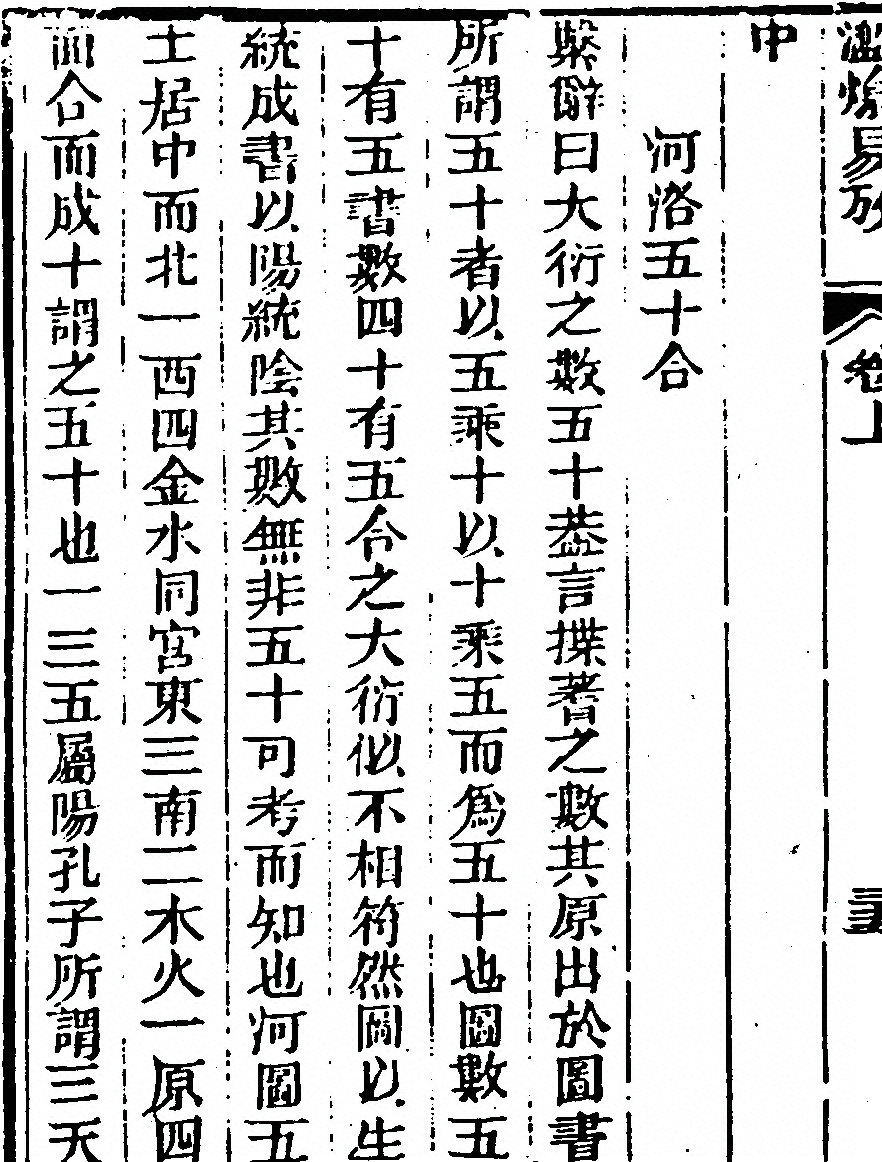 易
卷上
中
河洛五十合
繫辭曰大衍之數五十葢言揲蓍之數其原出於圖書
所謂五十者以五乘十以十乘五而爲五十也圖數五
十有五書數四十有五合之大衍似不相符然圖以生
統成書以陽統陰其數無非五十可考而知也河圖五
土居中而北一西四金水同宮東三南二木火一原四
而合而成十謂之五十也一三五屬陽孔子所謂三天